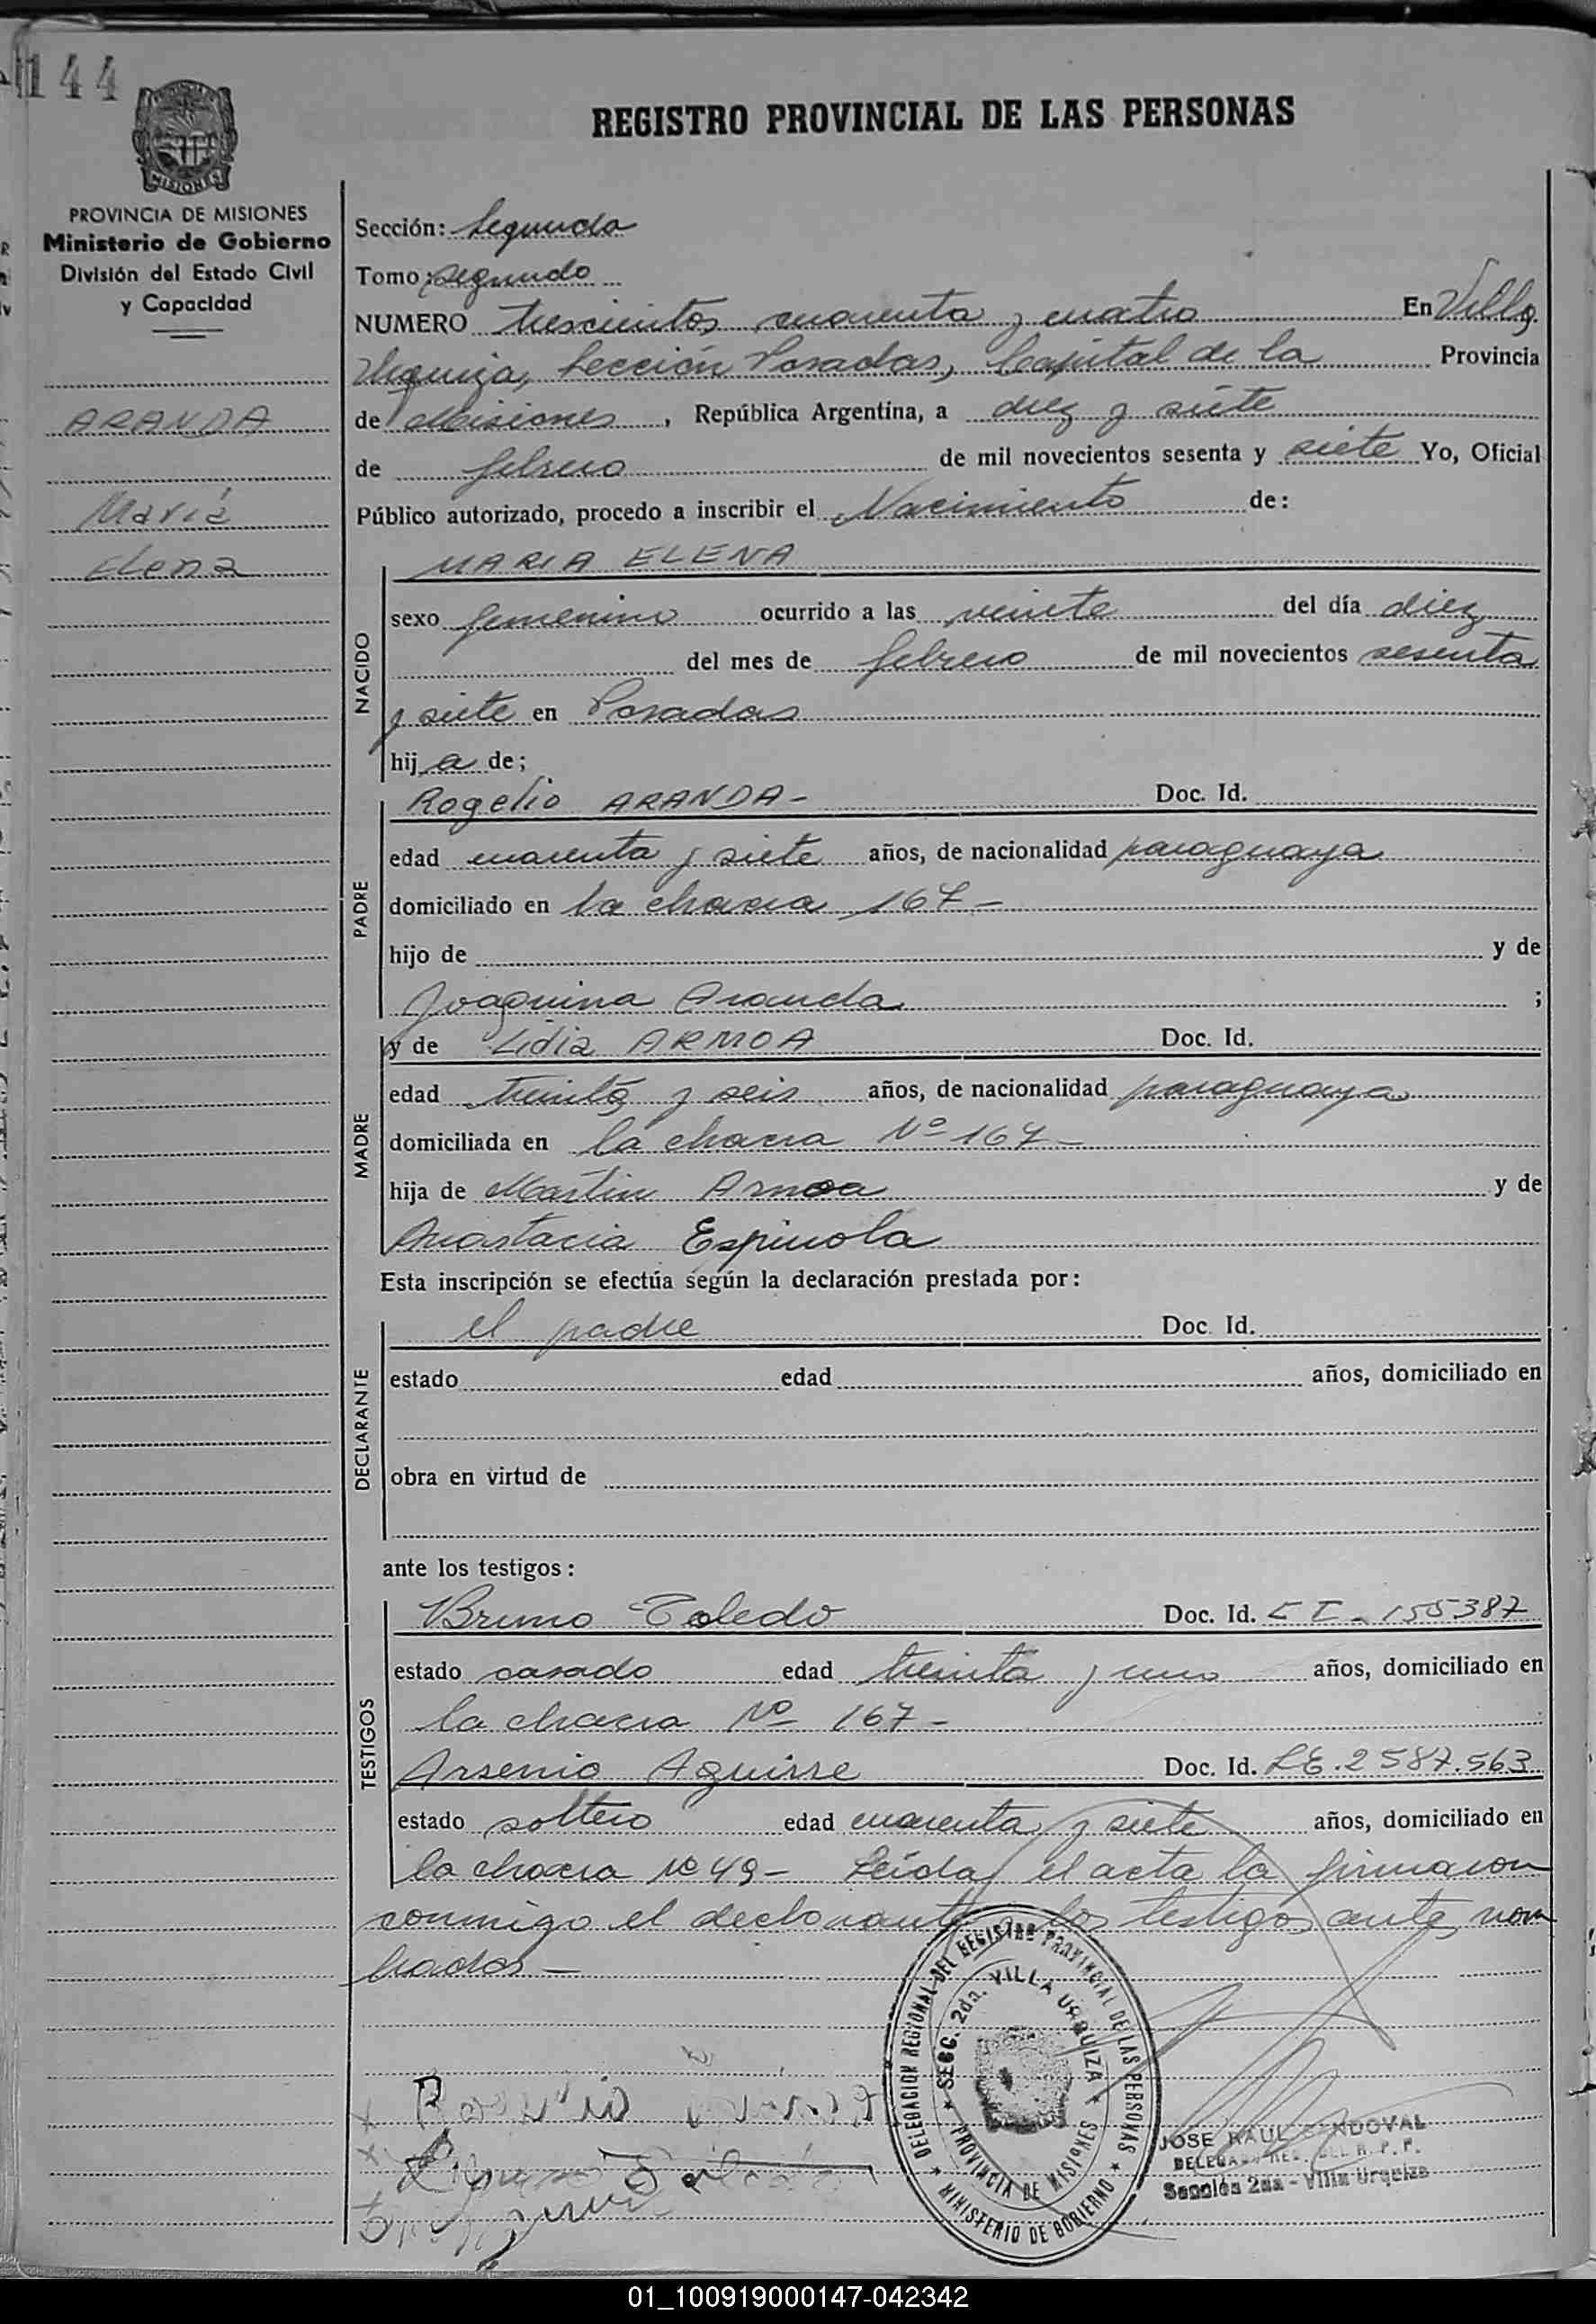 144
REGISTRO PROVINCIAL DE LAS PERSONAS
MISIONES
PROVINCIA DE MISIONES
Ministerio de Gobierno
División del Estado Civil
y Capacidad
ARANDA
María
Elena
Sección: Segunda
Tomo: segundo
NUMERO trescientos cuarenta y cuatro En Villa
Urquiza, Sección Posadas, Capital de la Provincia
de Misiones, República Argentina, a diez y siete
de febrero de mil novecientos sesenta y siete Yo, Oficial
Público autorizado, procedo a inscribir el Nacimiento de:
NACIDO
MARIA ELENA
sexo femenino ocurrido a las veinte del día diez
del mes de febrero de mil novecientos sesenta
y siete en Posadas
hija de;
PADRE
Rogelio ARANDA- Doc. Id.
edad cuarenta y siete años, de nacionalidad paraguaya
domiciliado en la chacra 167-
hijo de y de
Joaquina Aranda ;
MADRE
y de Lidia ARMOA Doc. Id.
edad treinta y seis años, de nacionalidad paraguaya
domiciliada en la chacra Nº 167-
hija de Martin Armoa y de
Anastacia Espinola
Esta inscripción se efectúa según la declaración prestada por:
DECLARANTE
el padre Doc. Id.
estado edad años, domiciliado en
obra en virtud de
ante los testigos:
TESTIGOS
Bruno Toledo Doc. Id. CI-155387
estado casado edad treinta y uno años, domiciliado en
la chacra Nº 167-
Arsenio Aguirre Doc. Id. LE.2587.563
estado soltero edad cuarenta y siete años, domiciliado en
la chacra Nº 49- Leída el acta la firmaron
conmigo el declarante y los testigos ante nom
brados-
DELEGACION REGIONAL DEL REGISTRO PROVINCIAL DE LAS PERSONAS
SECC. 2da. VILLA URQUIZA
PROVINCIA DE MISIONES
MINISTERIO DE GOBIERNO
JOSE RAUL SANDOVAL
Sección 2da - Villa Urquiza
01_100919000147-042342